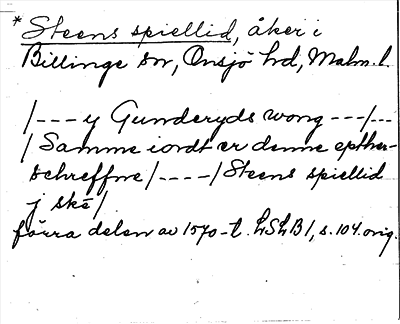 * Steens spiellid, åker i
Billinge sn, Onsjö hd, Malm. l.
/--- y Gunderyds wong ---/---
/ Samme iordt er denne epther-
schreffne /----/ Steens spiellid
j skē /
förra delen av 1570-t. LSLB 1, s. 104. orig.